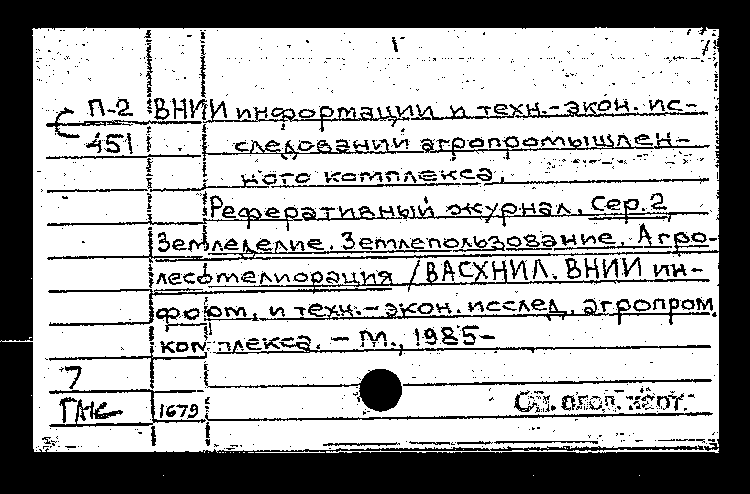 П-2 ВНИИ информации и техн.-экон. ис-
451 следований агропромышлен-
ного комплекса.
Реферативный журнал. Сер. 2,
Земледелие. Землепользование. Агро-
лесомелиорация / ВАСХНИЛ. ВНИИ ин-
форм. и техн.-экон. исслед. агропром.
комплекса. - М., 1985-
7
1679